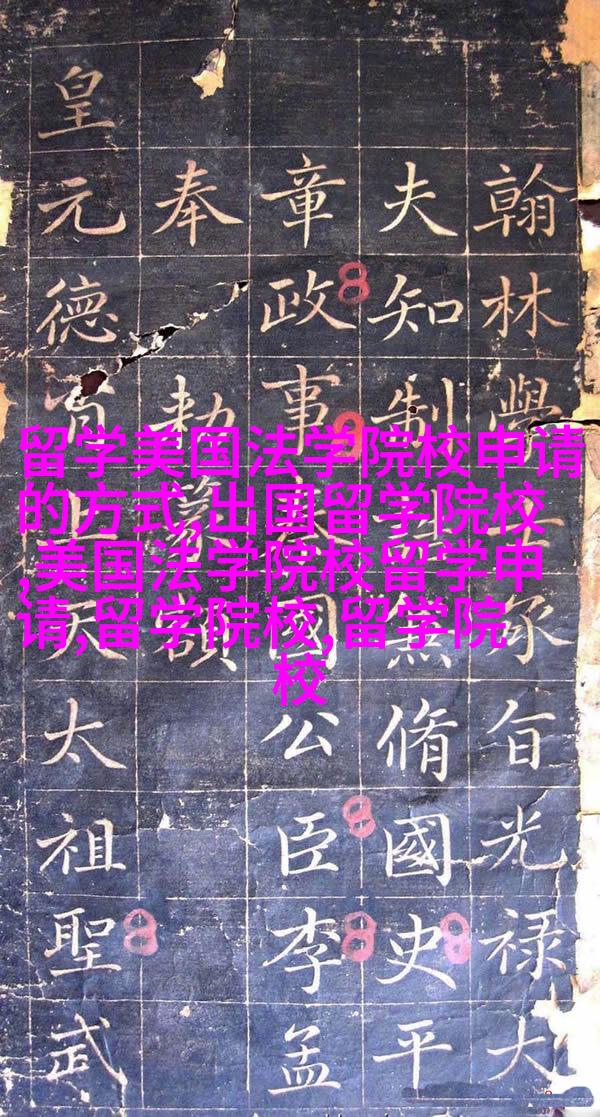 留学美国法学院校申请
的方式,出国留学院校
,美国法学院校留学申
请,留学院校,留学院
校
翰林學士承旨光禄大
夫知制兼脩國史平
章政事秦國公臣李孟
奉勅篆額
皇元德天太祖聖武